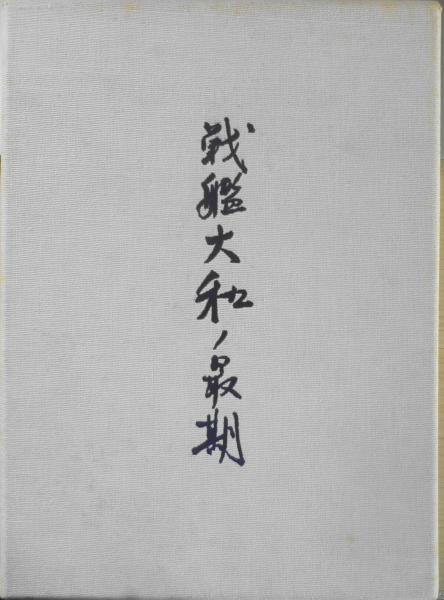 戦艦大和ノ最期